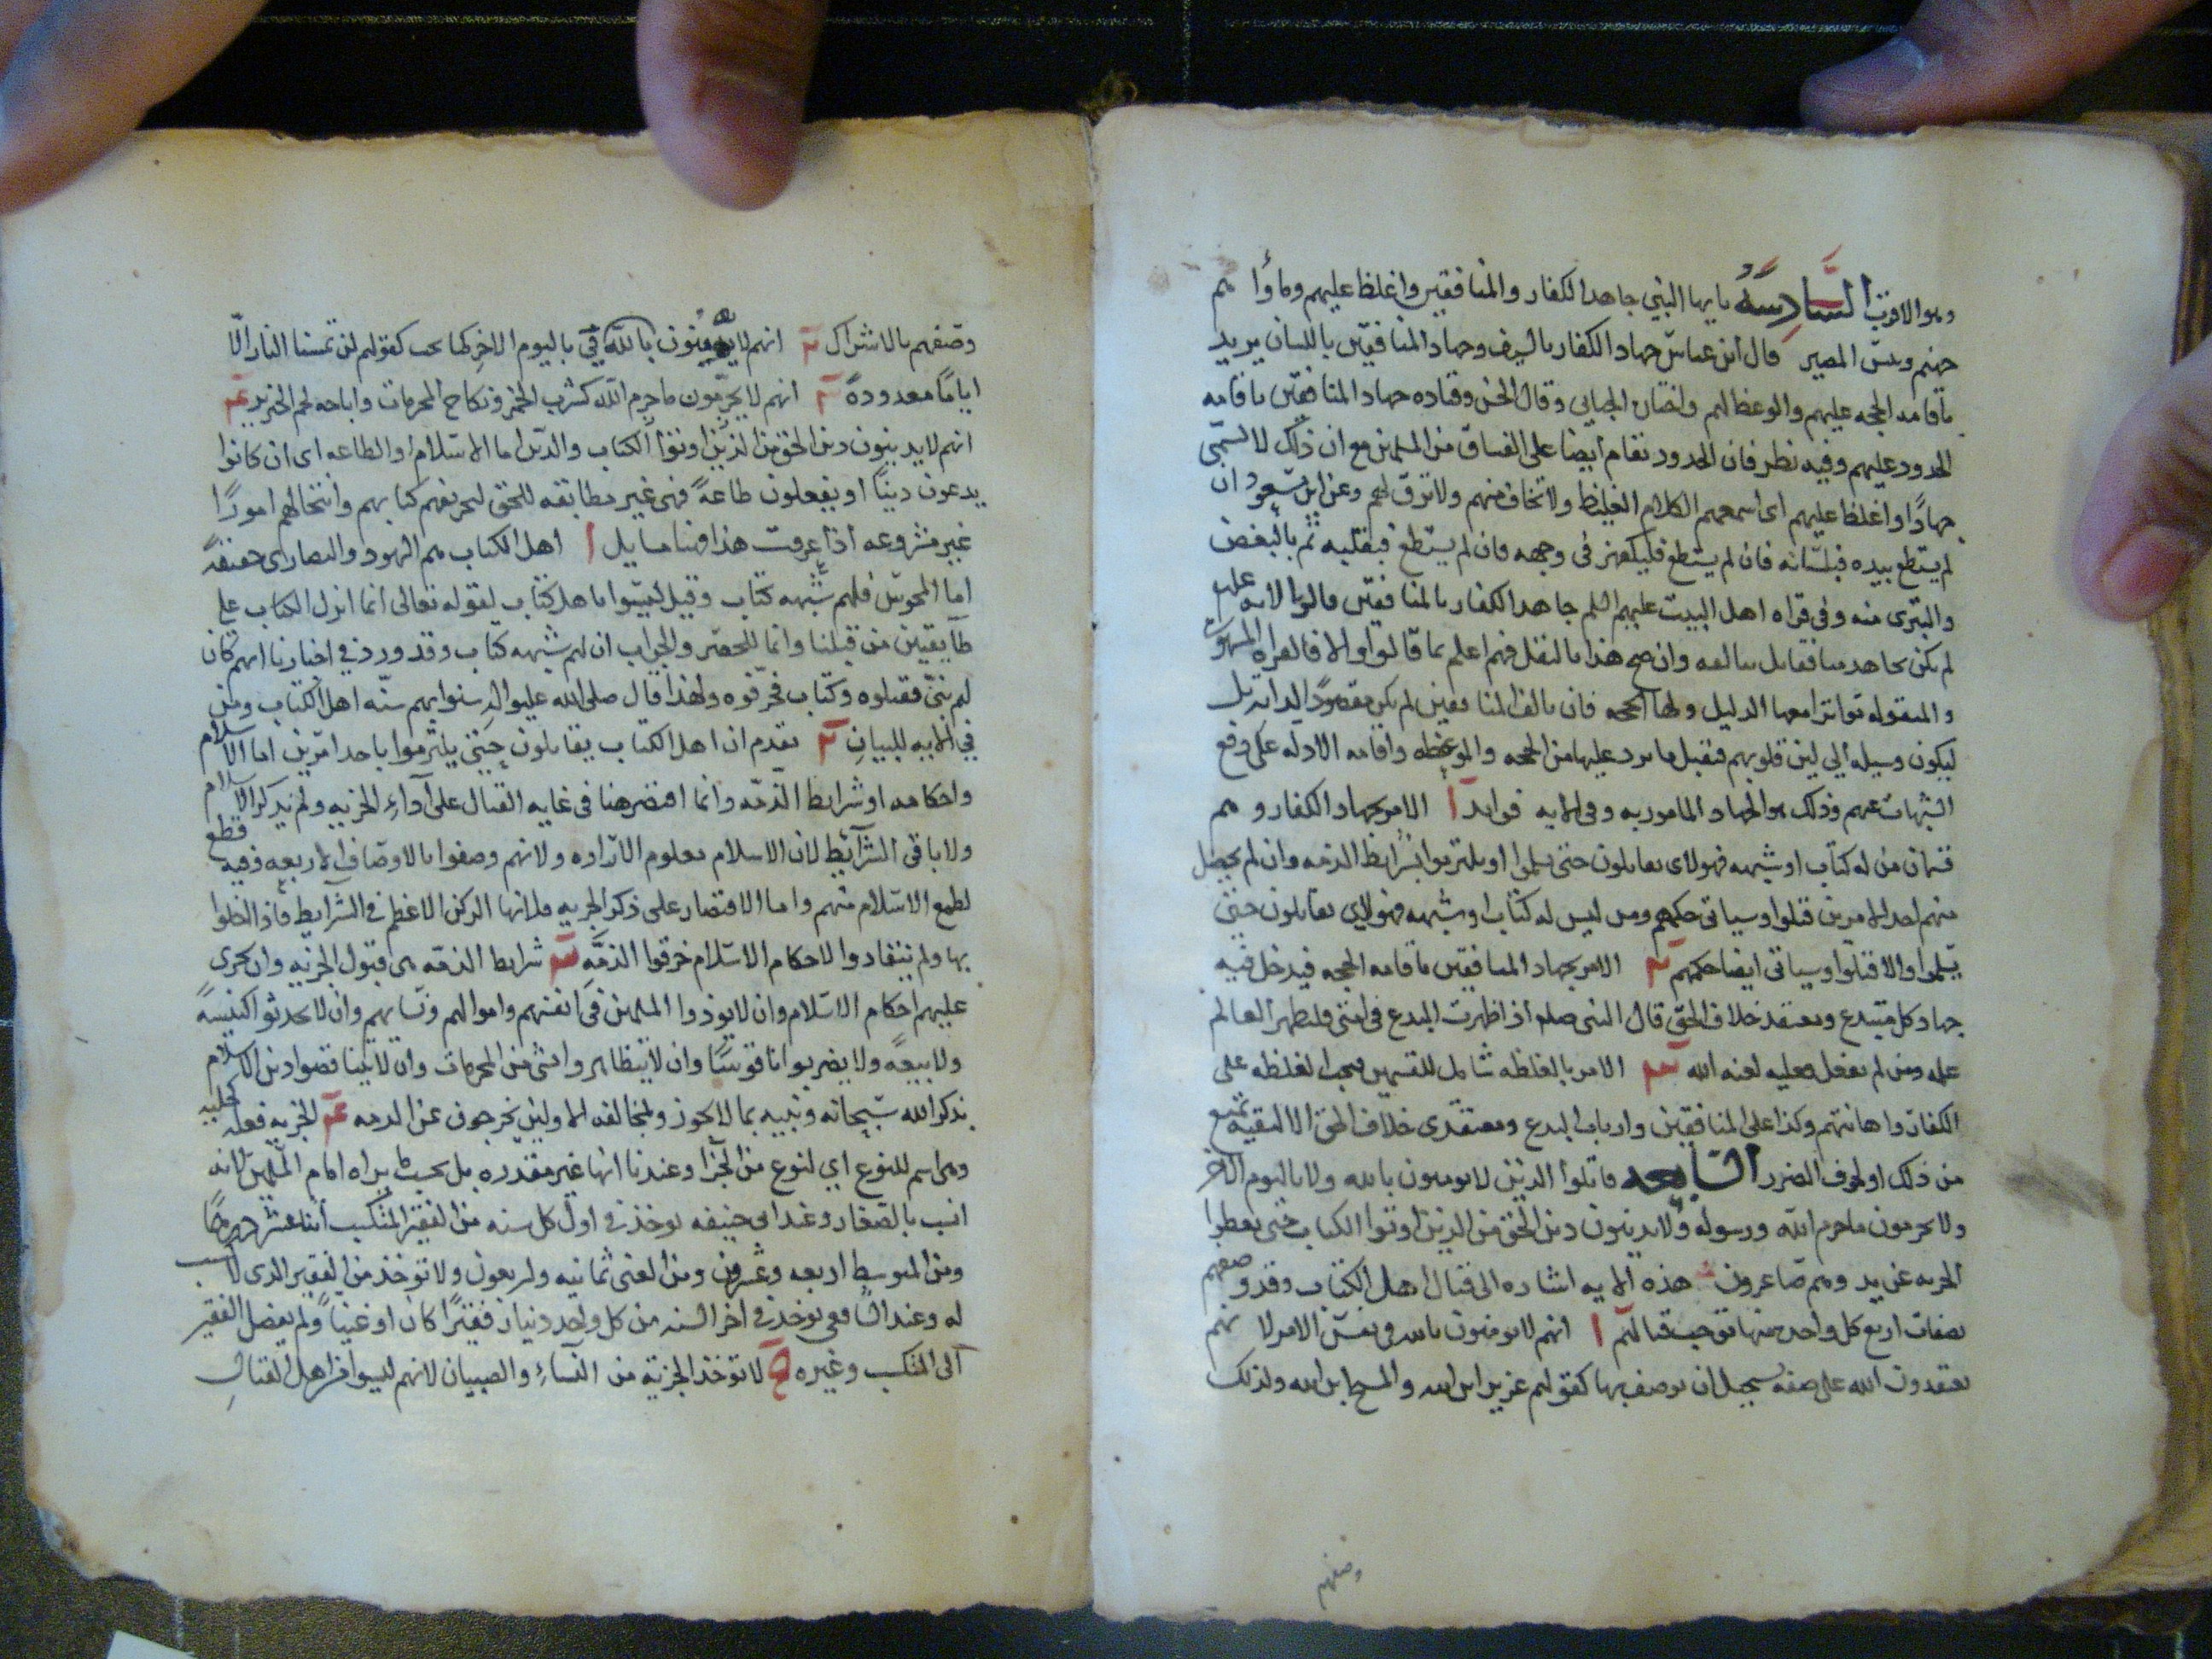 وهو الاقرب السادسة يايها النبي جاهد الكفار والمنافقين واغلظ عليهم وماوا هم
جهنم وبئس المصير قال ابن عباس جهاد الكفار بالسيف وجهاد المنافقين باللسان يريد
باقامه الحجه عليهم والوعظ لهم واختاره الجبايي وقال الحسن وقتاده جهاد المنافقين باقامه
الحدود عليهم وفيه نظر فان الحدود تقام ايضا على الفساق من المسلمين مع ان ذلك لا يسمى
جهادا واغلظ عليهم اى اسمعهم الكلام الغليظ ولا تخاف منهم ولا ترق لهم وعن ابن مسعود ان
لم يستطع بيده فبلسانه فان لم يستطع فليكفهر فى وجهه فان لم يستطع فبقلبه ثم بالبغض
والتبرى منه وفى قراه اهل البيت عليهم السلم جاهد الكفار بالمنافقين قالوا لانه عليه
لم يكن يجاهد منافقا بل يتالفه وان صح هذا بالنقل فهم اعلم بما قالوا والا فالقراه المشهوره
والمنقوله تواترا معها الدليل ولها الحجه فان تالف المنافقين لم يكن مقصودا لذاته بل
ليكون وسيله الى لين قلوبهم فتقبل ما يرد عليها من الحجه والموعظه واقامه الادله على رفع
الشبهات عنهم وذلك هو الجهاد المامور به وفى الايه فوايد ا الامر بجهاد الكفار وهم
قسمان من له كتاب او شبهه فهولاى يقاتلون حتى يسلموا او يلتزموا بشرايط الذمه وان لم يحصل
منهم احد الامرين قتلوا وسياتى حكمهم ومن ليس له كتاب او شبهه فهولاى يقاتلون حتى
يسلموا والا قتلوا وسياتى ايضا حكمهم الامر بجهاد المنافقين باقامه الحجه فيدخل فيه
جهاد كل مبتدع ومعتقد خلاف الحق قال النبى صلعم اذا ظهرت البدع فى امتى فليظهر العالم
علمه ومن لم يفعل فعليه لعنه الله الامر بالغلظه شامل للقسمين فيجب الغلظه على
الكفار واهانتهم وكذا على المنافقين وارباب البدع ومعتقدى خلاف الحق الا لتقيه تمنع
من ذلك او لخوف الضرر السابعه قاتلوا الذين لا يومنون بالله ولا باليوم الاخر
ولا يحرمون ما حرم الله ورسوله ولا يدينون دين الحق من الذين اوتوا الكتاب حتى يعطوا
الجزيه عن يد وهم صاغرون هذه الايه اشاره الى قتال اهل الكتاب وقد وصفهم
بصفات اربع كل واحده منها توجب قتالهم ا انهم لا يومنون بالله فى نفس الامر لانهم
يعتقدون الله على صفه يستحيل ان يوصف بها كقولهم عزير ابن الله والمسيح ابن الله ولذلك
وصفهم
وصفهم بالاشراك انهم لا يومنون بالله فى باليوم الاخر كما يجب كقولهم لن تمسنا النار الا
اياما معدودة انهم لا يحرمون ما حرم الله كشرب الخمر ونكاح المحرمات واباحه لحم الخنزير
انهم لا يدينون دين الحق من الذين اوتوا الكتاب والدين اما الاسلام او الطاعه اى ان كانوا
يدعون دينا او يفعلون طاعة فهى غير مطابقه للحق لتحريفهم كتابهم وانتحالهم امورا
غير مشروعه اذا عرفت هذا فهنا مسايل ا اهل الكتاب هم اليهود والنصارى حقيقة
اما المجوس فلهم شبهه كتاب وقيل ليسوا باهل كتاب لقوله تعالى انما انزل الكتاب على
طايفتين من قبلنا وانما للحصر والجواب ان لهم شبهه كتاب وقد ورد فى اخبارنا انهم كان
لهم نبى فقتلوه وكتاب فحرقوه ولهذا قال صلى الله عليه واله سنوا بهم سنه اهل الكتاب ومن
فى الايه للبيان تقدم ان اهل الكتاب يقاتلون حتى يلتزموا باحد امرين اما الاسلام
واحكامه او شرايط الذمه وانما اقتصر هنا فى غايه القتال على اداء الجزيه ولم يذكر الاسلام
ولا باقى الشرايط لان الاسلام معلوم الاراده ولانهم وصفوا بالاوصاف الاربعه وفيه قطع
لطمع الاسلام منهم واما الاقتصار على ذكر الجزيه فلانها الركن الاعظم فى الشرايط فاذا اخلوا
بها ولم ينقادوا لاحكام الاسلام خرقوا الذمه شرايط الذمه هى قبول الجزيه وان تجرى
عليهم احكام الاسلام وان لا يوذوا المسلمين فى انفسهم واموالهم ونسايهم وان لا يحدثوا كنيسة
ولا بيعة ولا يضربوا ناقوسا وان لا يتظاهروا بشى من المحرمات وان لا يناقضوا دين الاسلام
بذكر الله سبحانه ونبيه بما لا يجوز ولمخالفه الاولين يخرجون عن الذمه الجزيه فعله كجلبه
وهى اسم للنوع اي لنوع من الجزا وعندنا انها غير مقدره بل بحسب ما يراه امام المسلمين لانه
انسب بالصغار وعند ابى حنيفه يوخذ فى اول كل سنه من الفقير المتكسب اثنا عشر درهما
ومن المتوسط اربعه وعشرون ومن الغنى ثمانيه واربعون ولا توخذ من الفقير الذى لا كسب
له وعند الشافعى يوخذ فى اخر السنه من كل واحد دينار فقيرا كان او غنيا ولم يفصل الفقير
الى المتكسب وغيره لا توخذ الجزية من النساء والصبيان لانهم ليسوا من اهل القتال